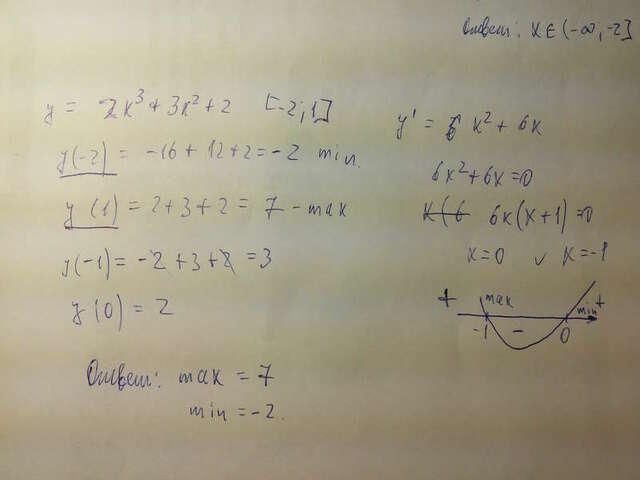 Ответ: x∈(-∞,-2]
y = 2x³+3x²+2 [-2;1]
y(-2) = -16+12+2=-2 min.
y(1) = 2+3+2 = 7 - max
y(-1)= -2+3+2 =3
y(0) = 2
Ответ: max = 7
min = -2.
y' = 6x²+6x
6x²+6x=0
x(6 6x(x+1)=0
x=0 ∨ x=-1
+ max min +
-1 - 0